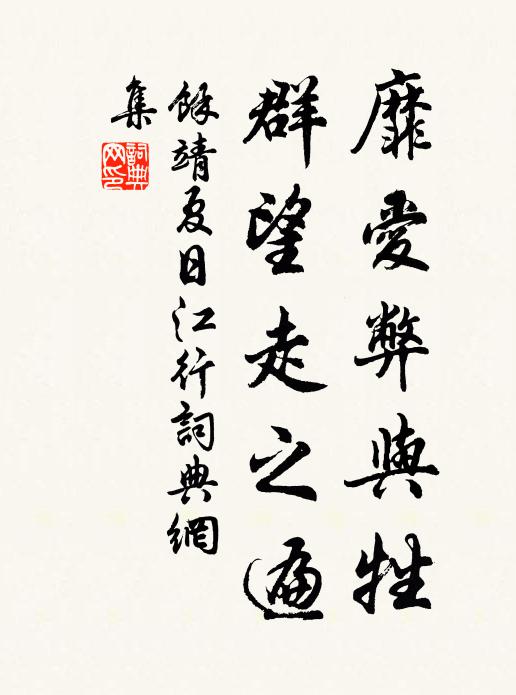 靡愛弊與牲
群望走之遍
餘靖夏日江行詞典網
集
詞典网印